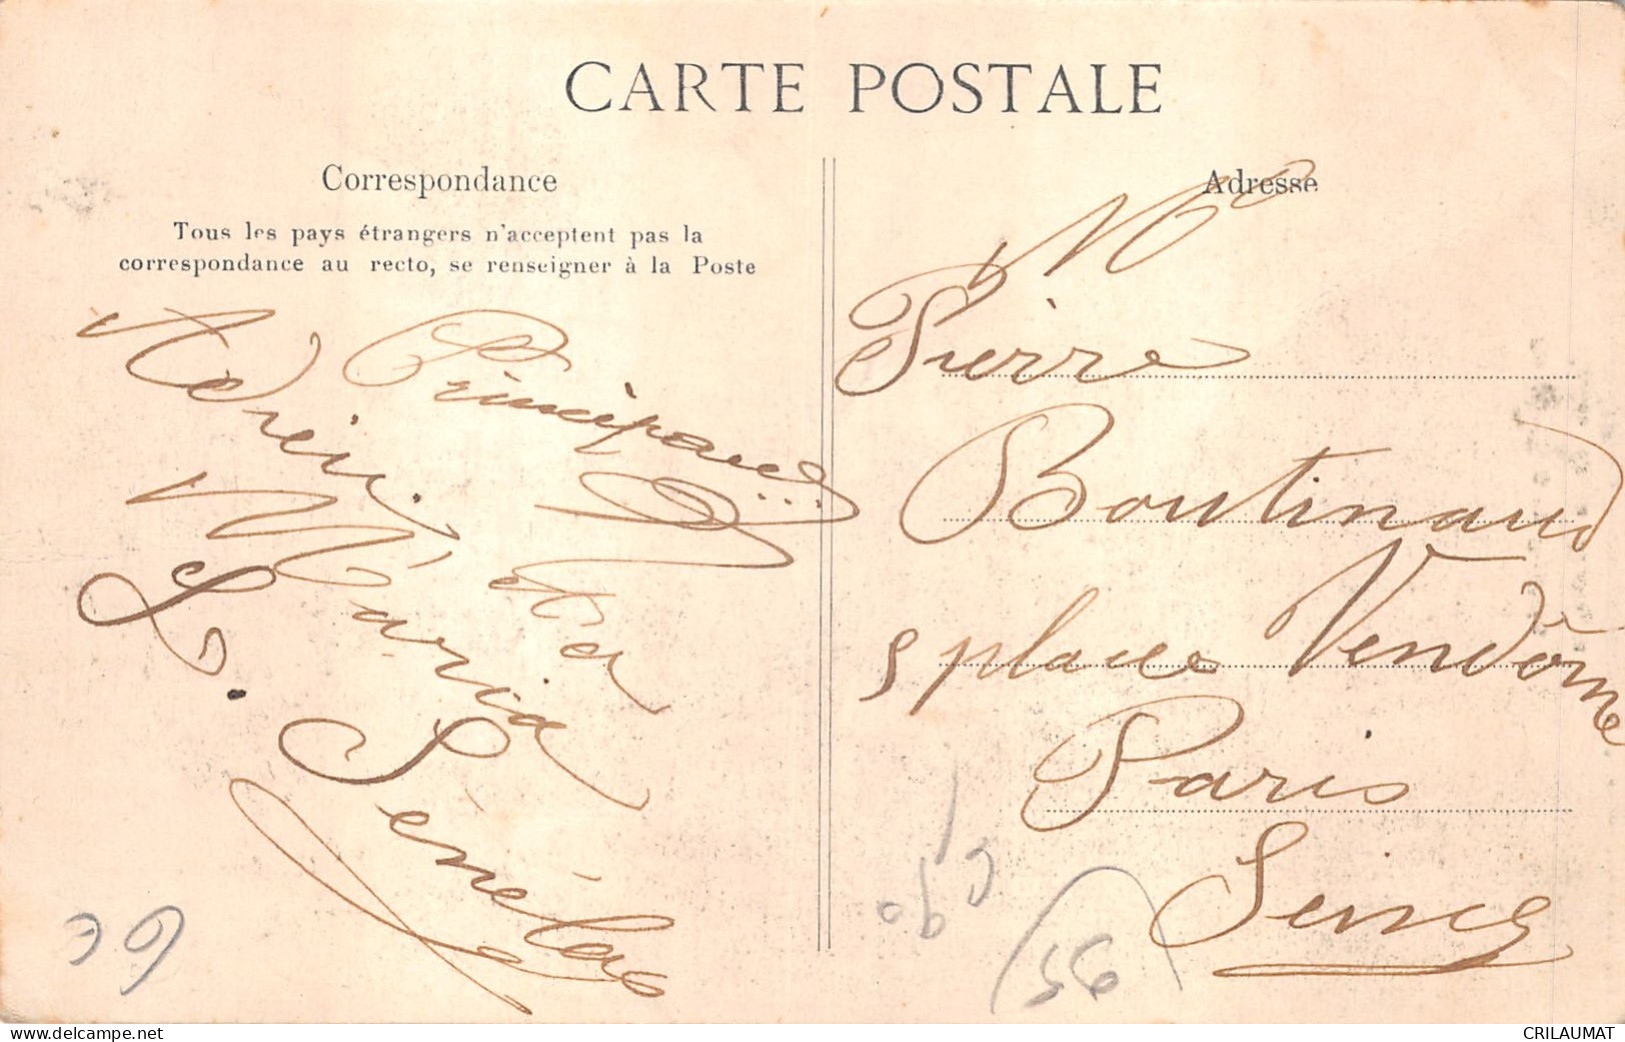 CARTE POSTALE
Correspondance
Tous les pays étrangers n'acceptent pas la
correspondance au recto, se renseigner à la Poste
Adrien Principaud
et
Maria
S. Sénélas
Adresse
Mr
Pierre
Boutinaud
5 place Vendôme
Paris
Seine
56
www.delcampe.net
CRILAUMAT